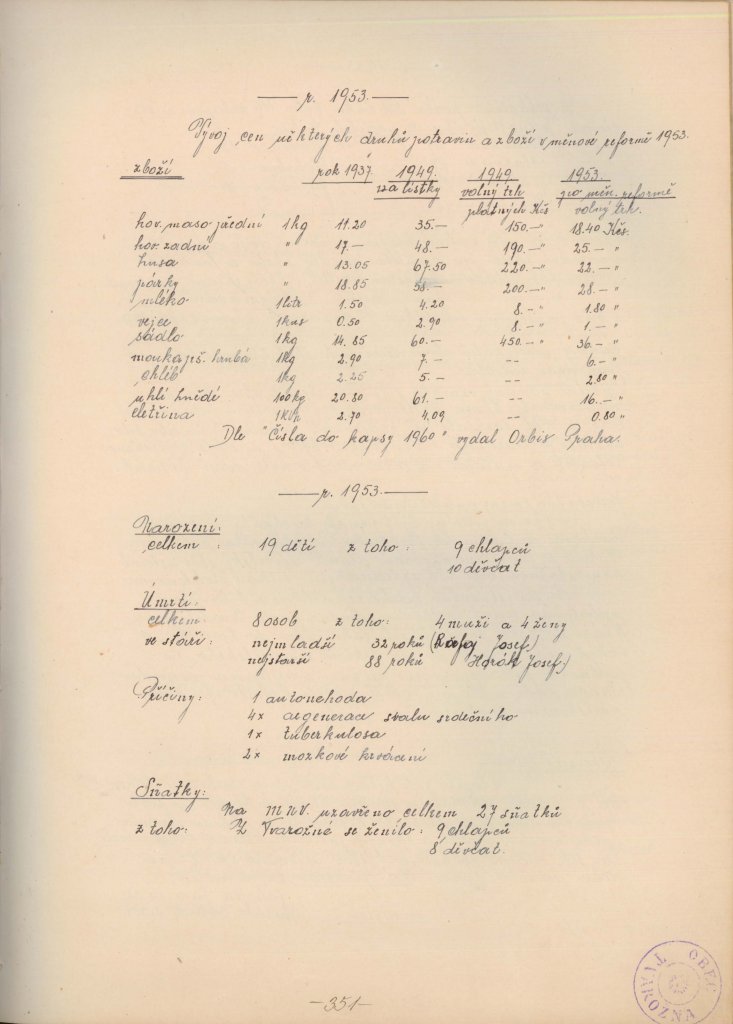 r. 1953.
Vývoj cen některých druhů potravin a zboží v měnové reformě 1953.
zboží rok 1937. 1949. za lístky 1949 volný trh platných Kčs 1953. po měn. reformě volný trh.
hov. maso přední 1kg 11.20 35.— 150.—" 18.40 Kčs.
hov. zadní " 17.— 48.— 190.—" 25.— "
husa " 13.05 67.50 220.—" 22.— "
párky " 18.85 58.— 200.—" 28.— "
mléko 1litr 1.50 4.20 8.—" 1.80 "
vejce 1kus 0.50 2.90 8.—" 1.— "
sádlo 1kg 14.85 60.— 450.—" 36.— "
mouka pš. hrubá 1kg 2.90 7.— -- 6.— "
chléb 1kg 2.25 5.— -- 2.80 "
uhlí hnědé 100kg 20.80 61.— -- 16.— "
eletřina 1KWh 2.70 4.09 -- 0.80 "
Dle "Čísla do kapsy 1960" vydal Orbis Praha.
r. 1953.
Narození:
celkem : 19 dětí z toho: 9 chlapců
10 děvčat
Úmrtí:
celkem: 8 osob z toho: 4 muži a 4 ženy
ve stáří: nejmladší 32 roků Josef.)
nejstarší 88 roků Horák Josef.)
Příčiny: 1 autonehoda
4x degenerace svalu srdečního
1x tuberkulosa
2x mozkové krvácení
Sňatky:
Na MNV. uzavřeno celkem 27 sňatků
z toho: Z Tvarožné se ženilo: 9 chlapců
8 děvčat.
-351-
OBEC TVAROŽNÁ